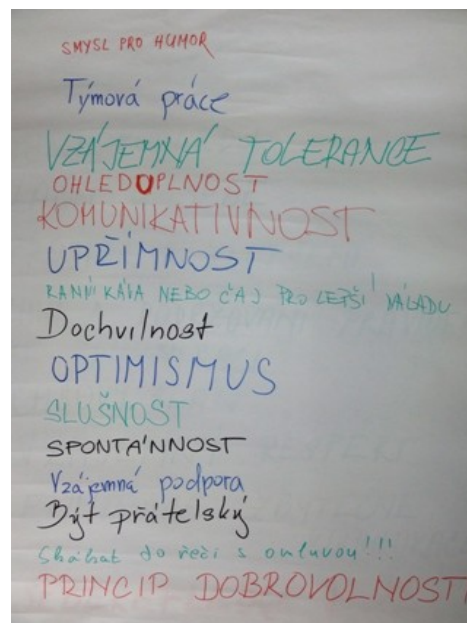 SMYSL PRO HUMOR
Týmová práce
VZÁJEMNÁ TOLERANCE
OHLEDUPLNOST
KOMUNIKATIVNOST
UPŘÍMNOST
RANNÍ KÁVA NEBO ČAJ PRO LEPŠÍ NÁLADU
Dochvilnost
OPTIMISMUS
SLUŠNOST
SPONTÁNNOST
Vzájemná podpora
Být přátelský
Skákat do řeči s omluvou!!!
PRINCIP DOBROVOLNOSTI